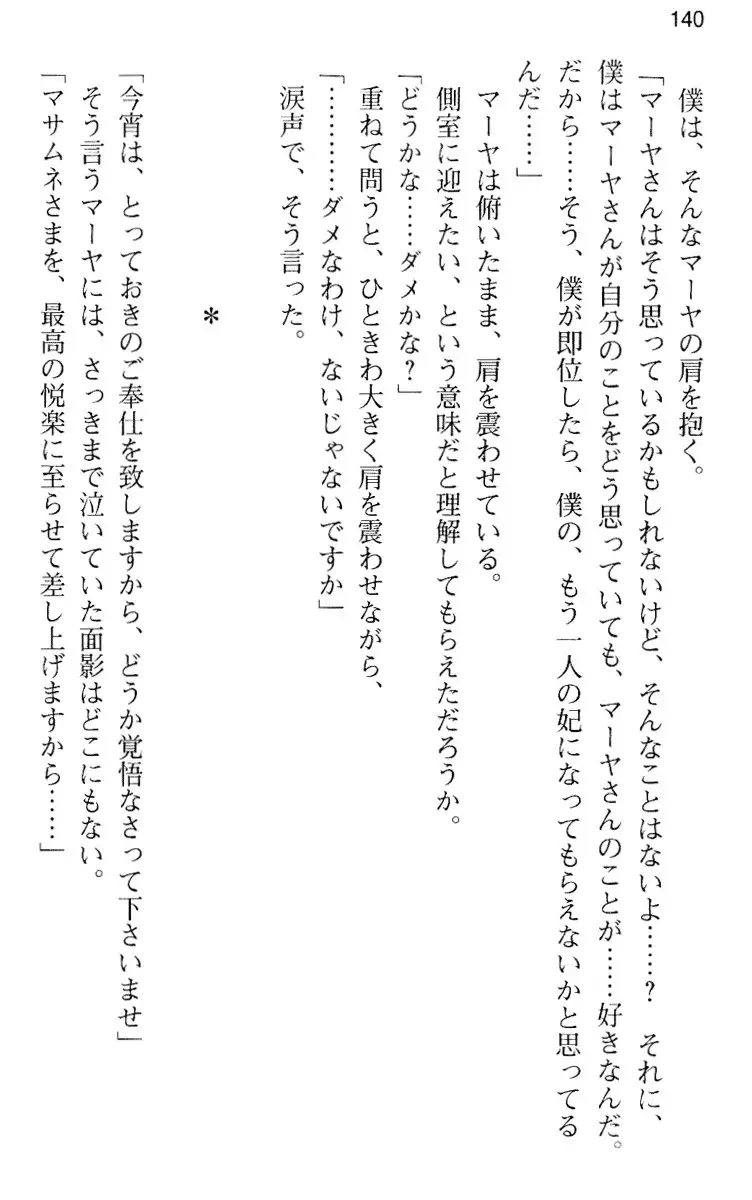 140
僕は、そんなマーヤの肩を抱く。
「マーヤさんはそう思っているかもしれないけど、そんなことはないよ……? それに、
僕はマーヤさんが自分のことをどう思っていても、マーヤさんのことが……好きなんだ。
だから……そう、僕が即位したら、僕の、もう一人の妃になってもらえないかと思ってる
んだ……」
マーヤは俯いたまま、肩を震わせている。
側室に迎えたい、という意味だと理解してもらえただろうか。
「どうかな……ダメかな?」
重ねて問うと、ひときわ大きく肩を震わせながら、
「…………ダメなわけ、ないじゃないですか」
涙声で、そう言った。
*
「今宵は、とっておきのご奉仕を致しますから、どうか覚悟なさって下さいませ」
そう言うマーヤには、さっきまで泣いていた面影はどこにもない。
「マサムネさまを、最高の悦楽に至らせて差し上げますから……」